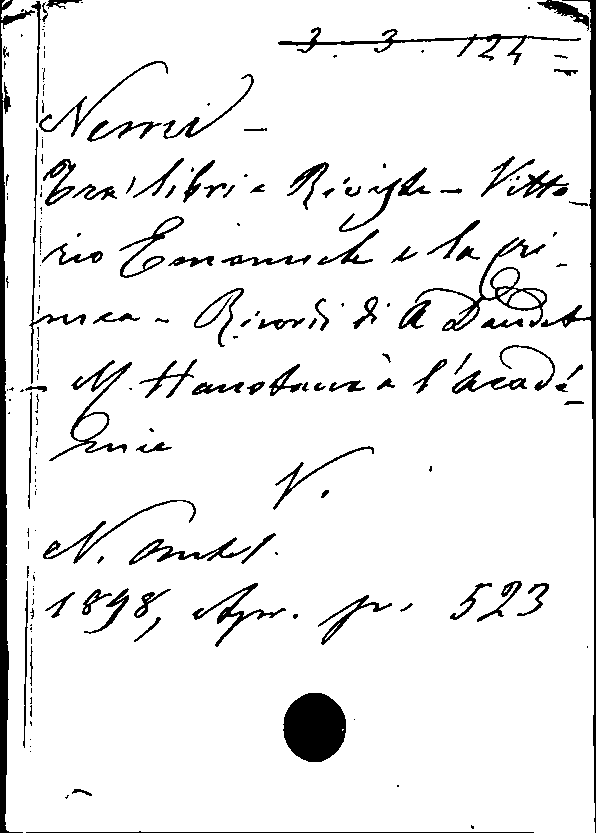 3. 3. 124 =
Nemi -
Tra' libri e Riviste - Vitto-
rio Emanuele e la Cri-
mea - Ricordi di A Daudet
- M. Hanotaux à l'Acadé-
mie
V.
N. Antol.
1898, Apr. p. 523